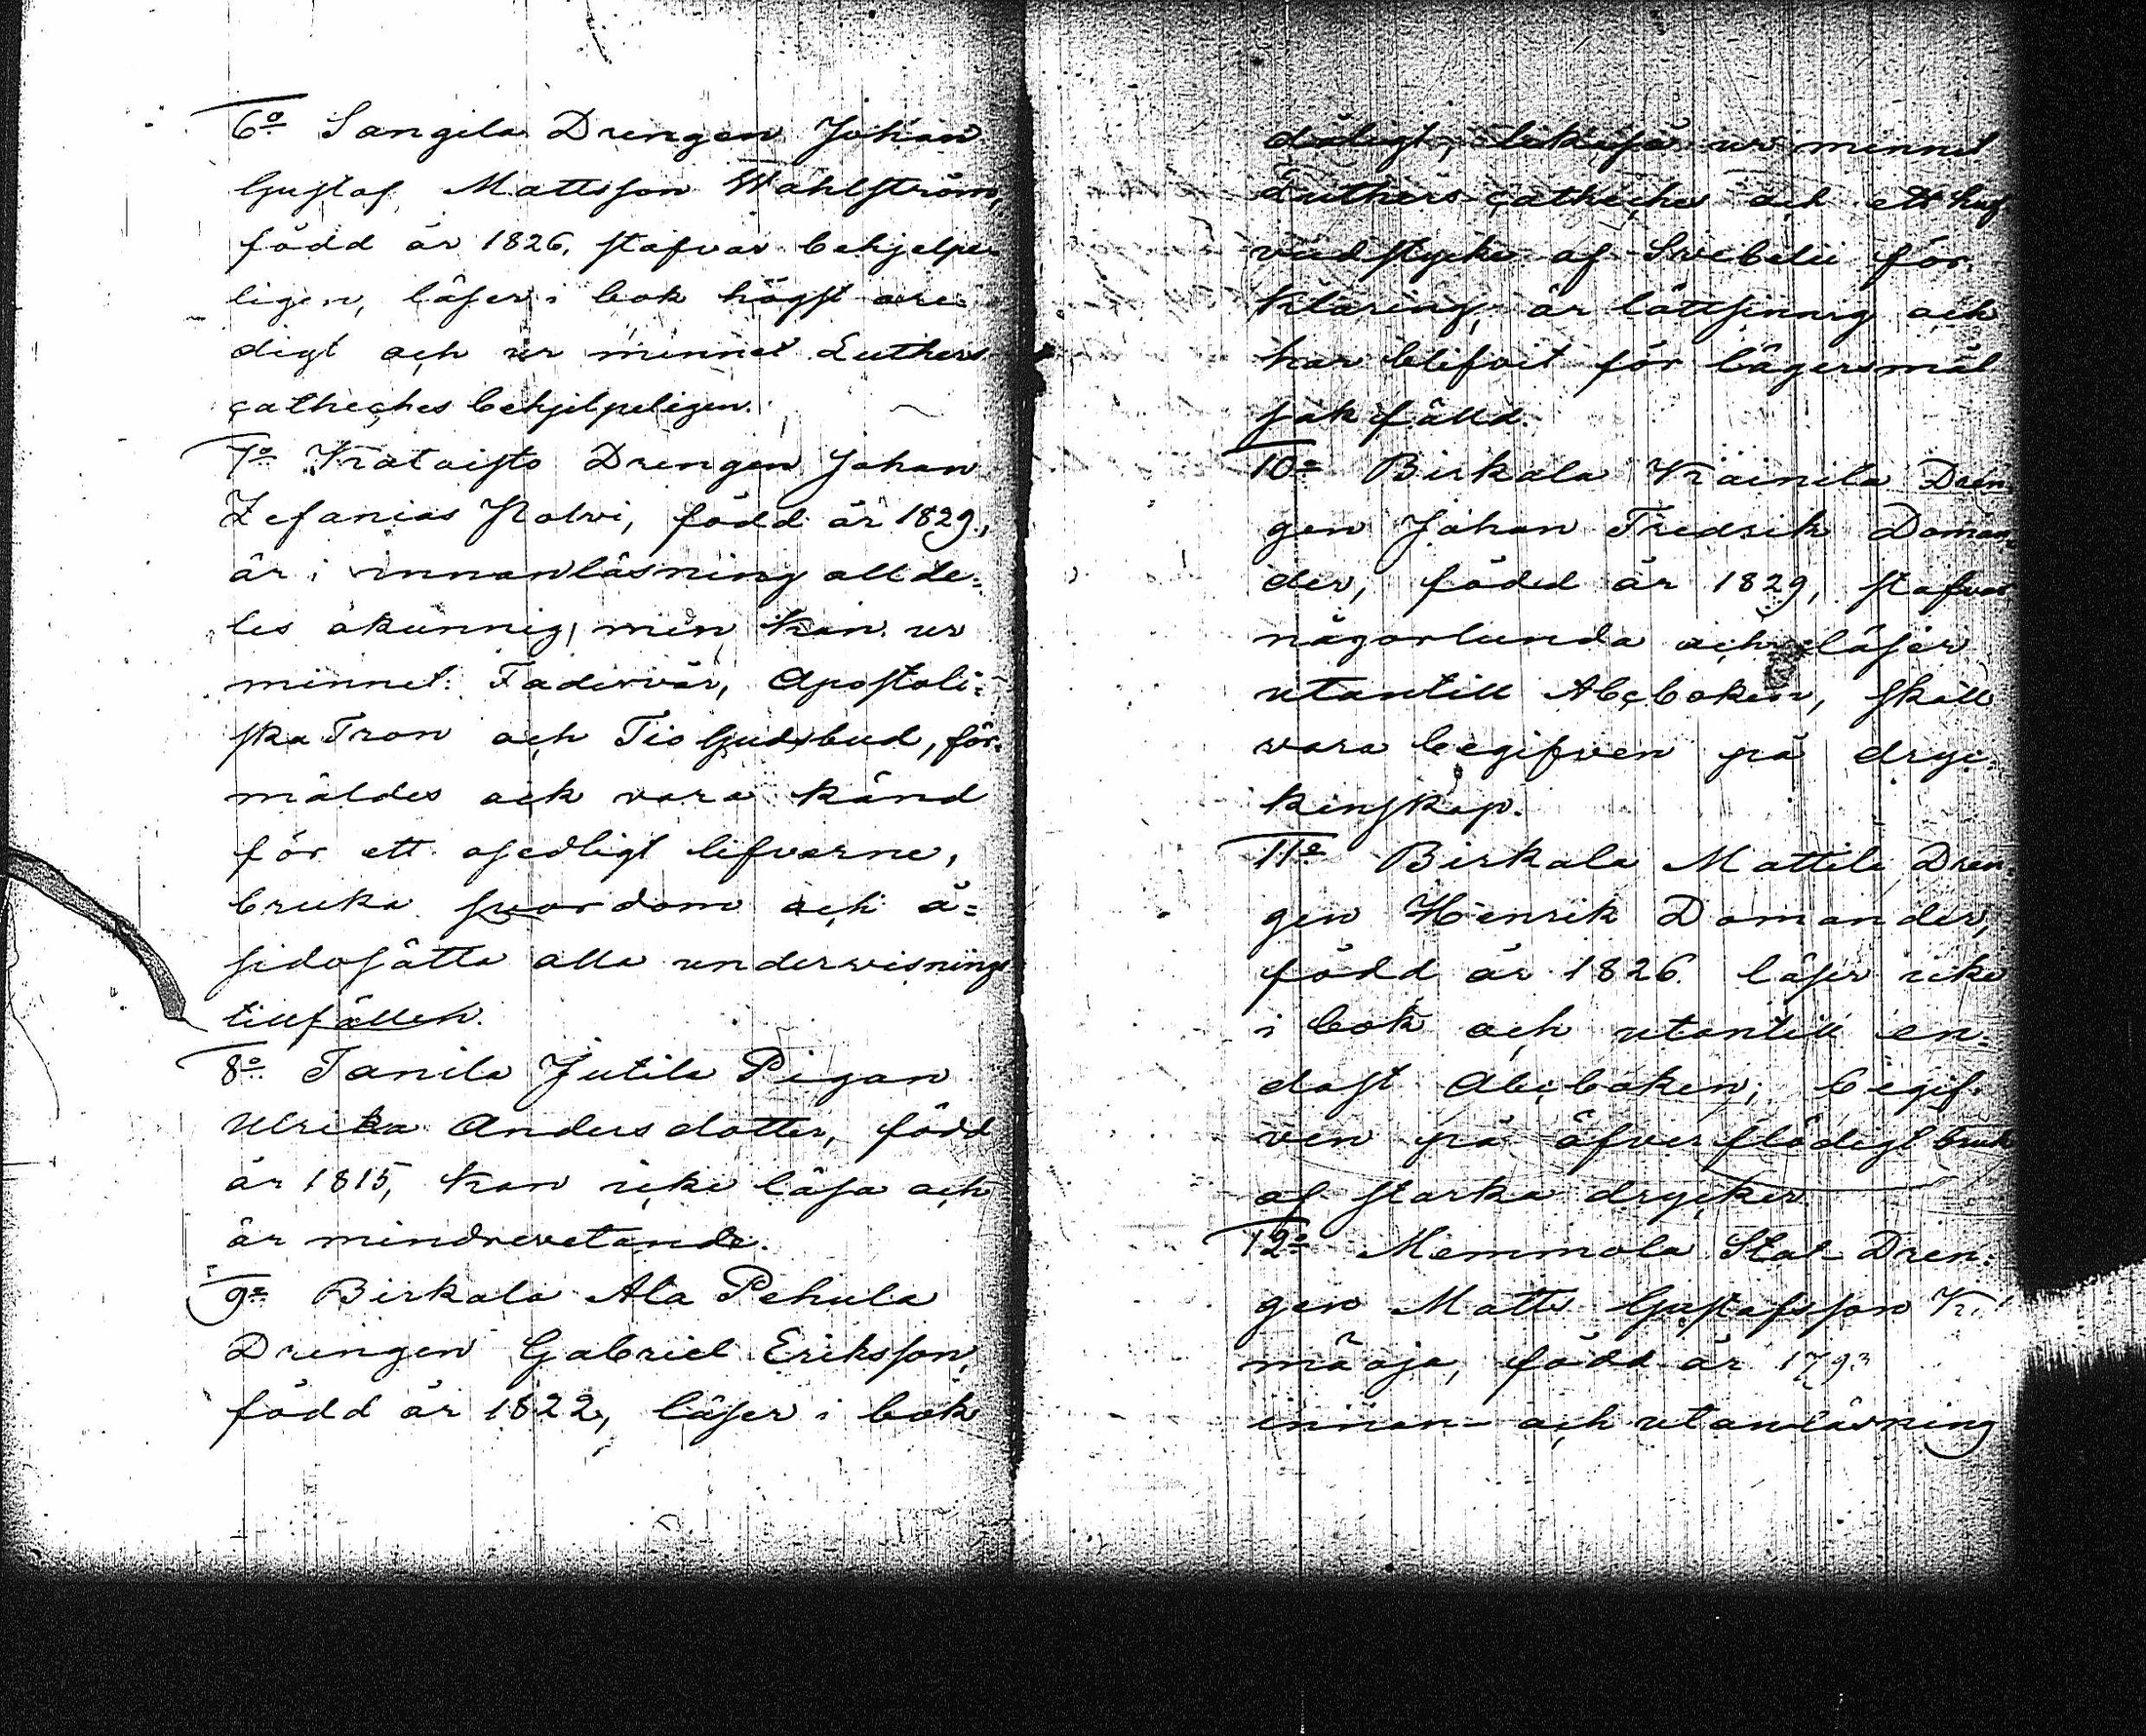 6º Sangila Drengen Johan
Gustaf Mattsson Wahlström,
född år 1826, stafvar behjelpe-
ligen, läser i bok högst ore-
digt och ur minnet Luthers
catheches behjelpeligen.
7º Krataisto Drengen Johan
Zefanias Polvi, född år 1829,
är i innanläsning allde=
les okunnig, men kan ur
minnet: Fadervår, Apostoli=
ska Tron och Tio Guds bud, för-
mäldes ock vara känd
för ett osedligt lefverne,
bruka svordom och å=
sidosätta alla underwisnings
tillfällen.
8º Tanila Jutila Pigan
Ulrika Andersdotter, född
år 1815, kan icke läsa och
är mindrevetande.
9º Birkala Ala Pehula
Drengen Gabriel Eriksson,
född år 1822, läser i bok
dåligt, likaså ur minnet
Luthers catheches och ett huf
vudstycke af Svebelii för-
klaring, är lättsinnig och
har blifvit för lägersmål
sakfälld.
10º Birkala Kräinila Dren-
gen Johan Fredrik Doman=
der, född år 1829, stafvar
någorlunda och läser
utantill Abcboken, skall
vara begifven på dryc-
kenskap.
11º Birkala Mattila Dren-
gen Henrik Domander,
född år 1826 läser icke
i bok och utantill en=
dast Abcboken; begif-
ven på öfverflödigt bruk
af starka drycker.
12º Memmola Stat-Dren=
gen Matts Gustafsson
född år 1793
innan- och utanläsning